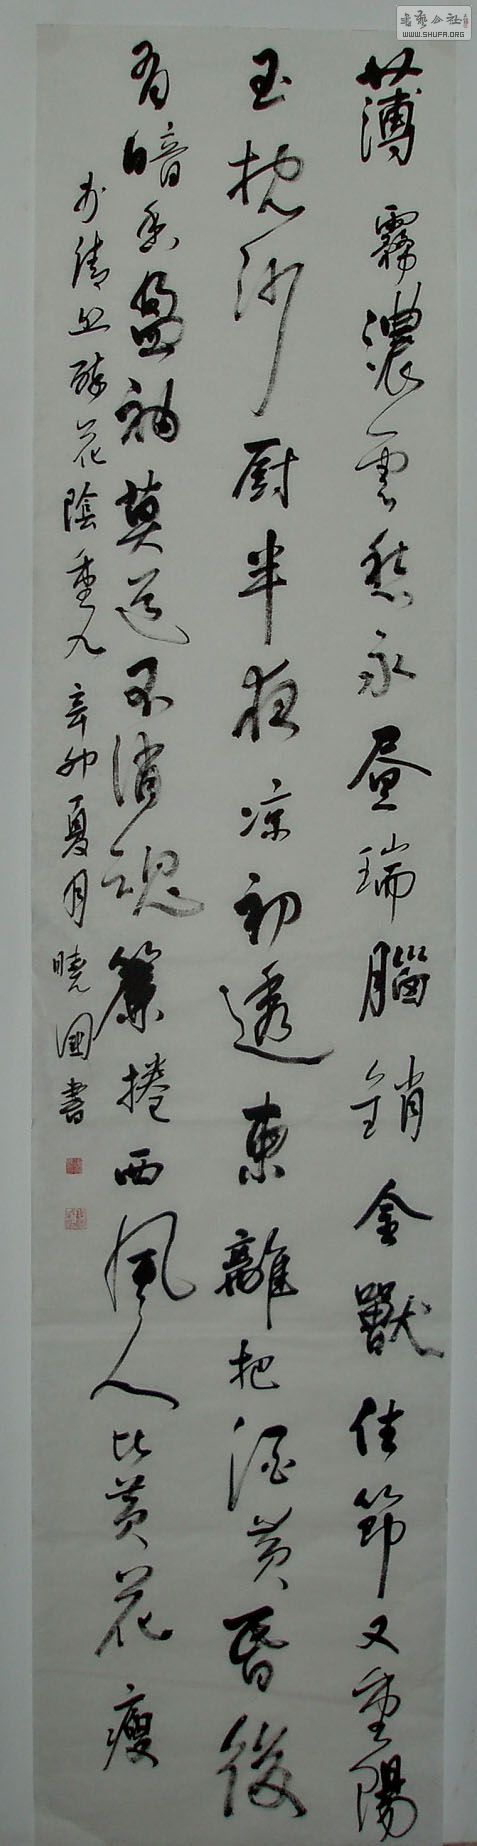 薄霧濃雲愁永昼瑞腦銷金獸佳節又重陽
玉枕紗厨半夜凉初透東離把酒黄昏後
有暗香盈袖莫道不消魂簾捲西風人比黄花瘦
李清照醉花陰重九 辛卯夏月 曉國書
書藝公社
WWW.SHUFA.ORG